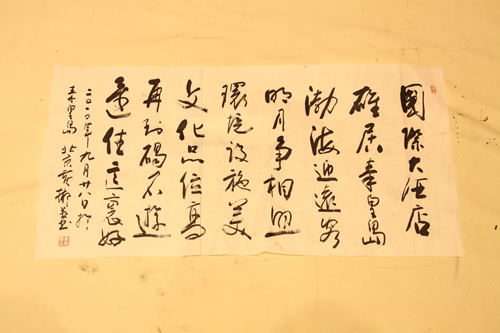 國際大酒店
雄居秦皇島
渤海迎遠客
明月爭相照
環境設施美
文化品位高
再到碣石遊
還住這裏好
二〇〇年九月廿八日於
秦皇島 北京